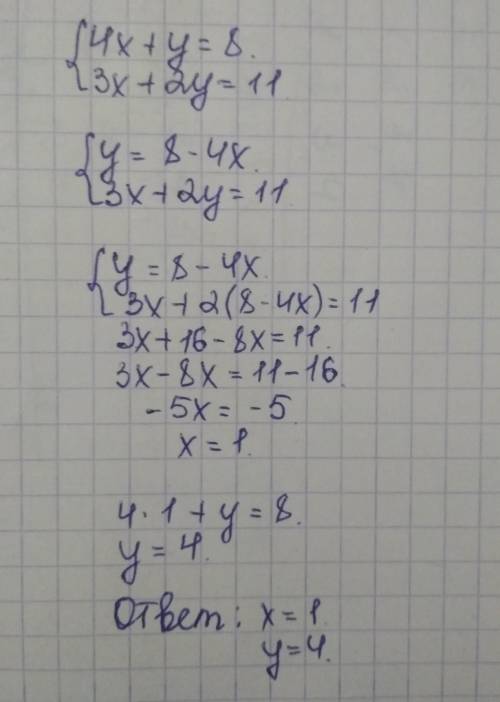 {4x + y = 8.
3x + 2y = 11
{y = 8 - 4x.
3x + 2y = 11.
{y = 8 - 4x.
3x + 2(8 - 4x) = 11
3x + 16 - 8x = 11.
3x - 8x = 11 - 16.
- 5x = - 5.
x = 1.
4 · 1 + y = 8.
y = 4.
Ответ: x = 1.
y = 4.